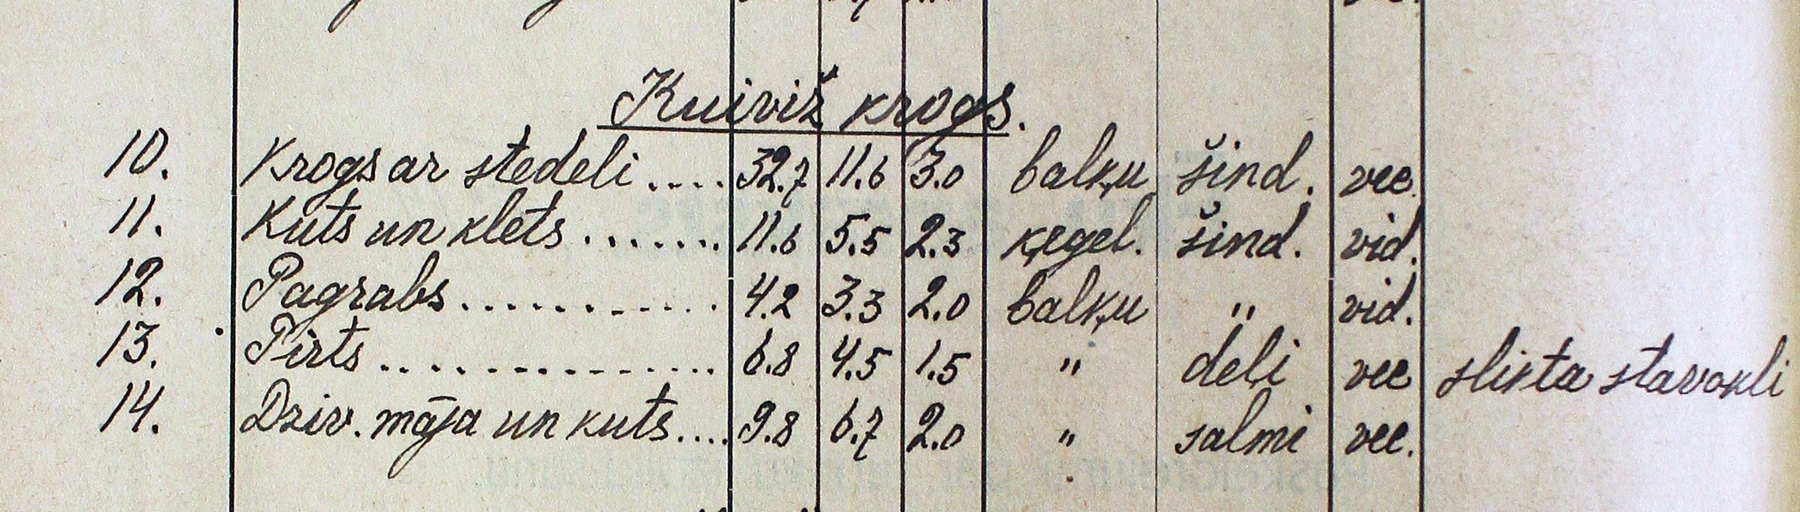 Kuiviž krogs.
10. Krogs ar stedeli .... 32.7 11.6 3.0 baļķu šind. vec.
11. Kuts un klets ....... 11.6 5.5 2.3 ķegel. šind. vid.
12. Pagrabs ............ 4.2 3.3 2.0 baļķu „ vid.
13. Pirts ............... 6.8 4.5 1.5 " deli vec slikta stavokli
14. Dziv. māja un kuts .... 9.8 6.7 2.0 " salmi vec.